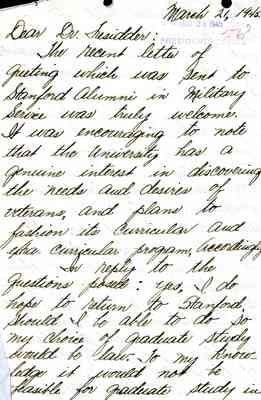 March 2, 1945
Dear Dr. Tresidder:
The recent letter of
greeting which was sent to
Stanford Alumni in Military
Service was truly welcome.
It was encouraging to note
that the University has a
genuine interest in discovering
the needs and desires of
veterans, and plans to
fashion its curricular and
extra curricular program, accordingly.
In reply to the
questions posed: yes, I do
hope to return to Stanford.
Should I be able to do so
my choice of graduate study
would be law. To my know-
ledge it would not be
feasible for graduate study in